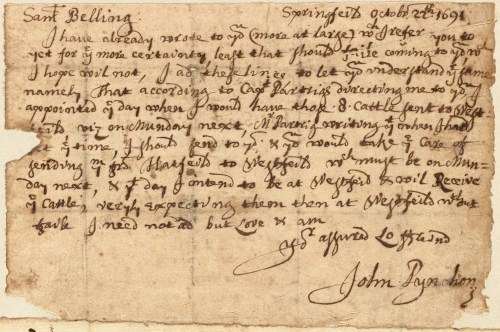 Saml Belling. Springfeild Octobr 22th 1691
I have already wrote to yo (more at large) wch I refer you to
yet for ye more certainty least that should faile coming to yo wch
I hope will not, I ad these lines to let yo understand ye same
namely That according to Capt Partrigs directing me to yo I
appointed ye day when I would have those 8 Cattle sent to West
feild viz on Munday next, Mr Partrigs writing yt when I had
set ye time, I should send to yo & yo would take ye Care of
sending ym from Hatfeild to Westfeild wch must be on Mun-
day next, & yt day I intend to be at Westfeild & wil Receive
ye Cattle, veryly Expecting them then at Westfeild wthout
faile I need not ad but Love & am
yor assured Lo ffreind
John Pynchon